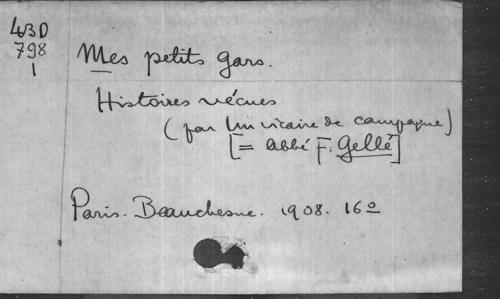 43D
798
1
Mes petits gars.
Histoires vécues
(par Un vicaire de campagne)
[= abbé F. Gellé]
Paris. Beauchesne. 1908. 16º